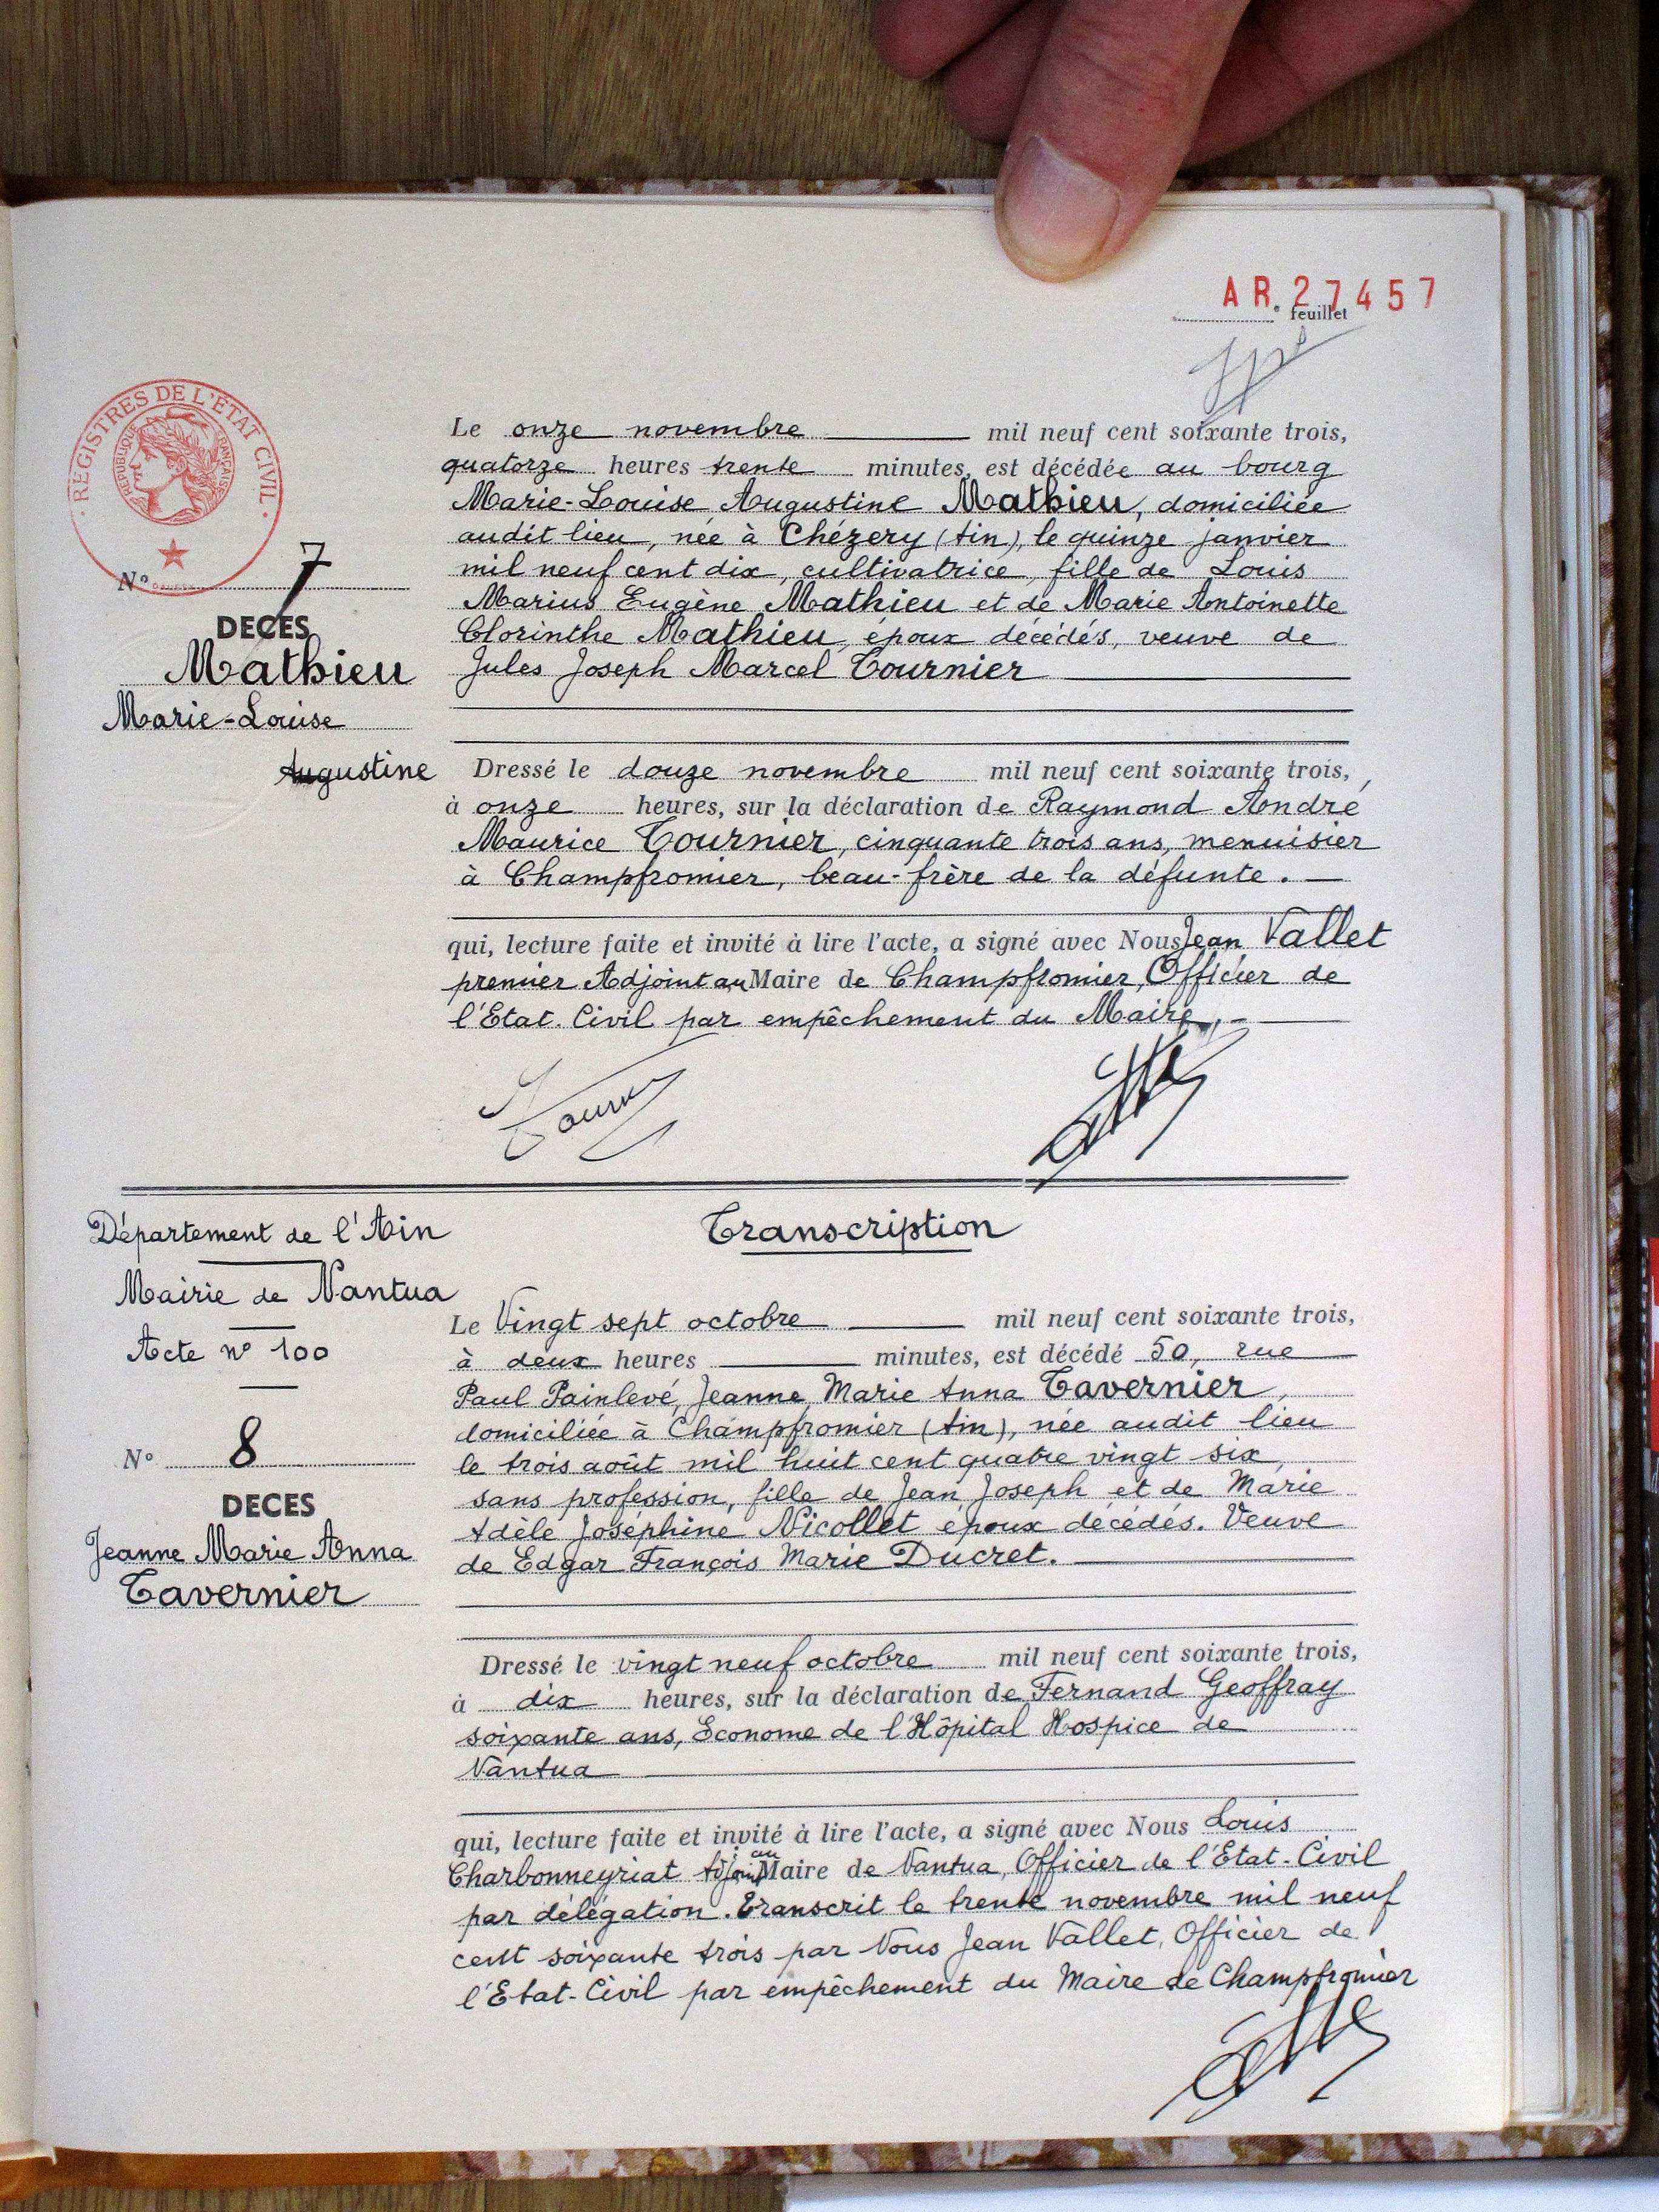 AR.27457
feuillet
REGISTRES DE L'ÉTAT CIVIL
RÉPUBLIQUE FRANÇAISE
Le onze novembre mil neuf cent soixante trois,
quatorze heures trente minutes, est décédée au bourg
Marie-Louise Augustine Mathieu, domiciliée
audit lieu, née à Chézery (Ain), le quinze janvier
mil neuf cent dix, cultivatrice, fille de Louis
Marius Eugène Mathieu et de Marie Antoinette
Clorinthe Mathieu, époux décédés, veuve de
Jules Joseph Marcel Tournier
N° 7
DECES
Mathieu
Marie-Louise
Augustine
Dressé le douze novembre mil neuf cent soixante trois,
à onze heures, sur la déclaration de Raymond André
Maurice Tournier, cinquante trois ans, menuisier
à Champfromier, beau-frère de la défunte.
qui, lecture faite et invité à lire l'acte, a signé avec Nous Jean Vallet
premier Adjoint au Maire de Champfromier, Officier de
l'Etat-Civil par empêchement du Maire.
Département de l'Ain
Mairie de Nantua
Acte n° 100
N° 8
DECES
Jeanne Marie Anna
Tavernier
Transcription
Le Vingt sept octobre mil neuf cent soixante trois,
à deux heures minutes, est décédé 50, rue
Paul Painlevé, Jeanne, Marie Anna Tavernier,
domiciliée à Champfromier (Ain), née audit lieu
le trois août mil huit cent quatre vingt six,
sans profession, fille de Jean Joseph et de Marie
Adèle Joséphine Nicollet époux décédés. Veuve
de Edgar François Marie Ducret.
Dressé le vingt neuf octobre mil neuf cent soixante trois,
à dix heures, sur la déclaration de Fernand Geoffray
soixante ans, Econome de l'Hôpital Hospice de
Nantua
qui, lecture faite et invité à lire l'acte, a signé avec Nous Louis
Charbonneyriat Adjoint au Maire de Nantua, Officier de l'Etat-Civil
par délégation. Transcrit le trente novembre mil neuf
cent soixante trois par Nous Jean Vallet, Officier de
l'Etat-Civil par empêchement du Maire de Champfromier